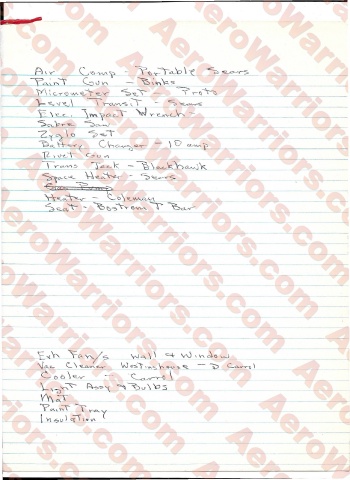 Air Comp - Portable Sears
Paint Gun - Binks
Micrometer Set - Proto
Level Transit - Sears
Elec. Impact Wrench
Sabre Saw
Zyglo Set
Battery Charger - 10 amp
Rivet Gun
Trans Jack - Blackhawk
Space Heater - Sears
Heater - Coleman
Seat - Bostrom T Bar
Exh Fan/s Wall & Window
Vac Cleaner Westinghouse - D Carrol
Cooler - Carrol
Light Assy & Bulbs
Mat
Paint Tray
Insulation
AeroWarriors.com